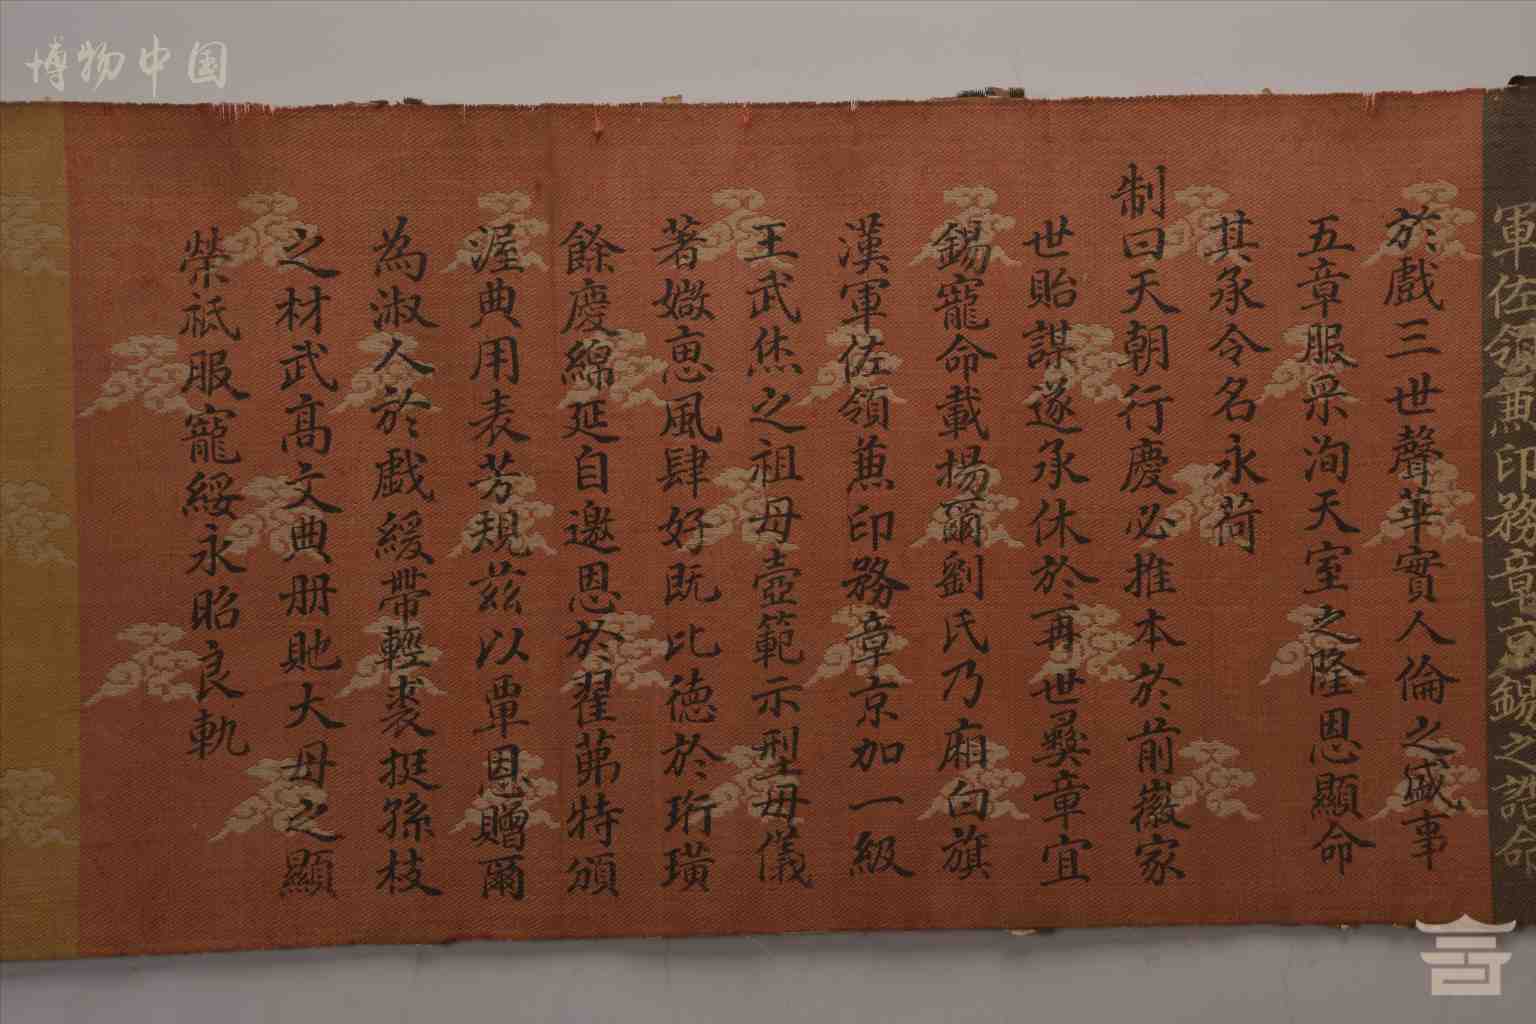 博物中国
軍佐領兼印務章京錫之誥命
於戲三世聲華實人倫之盛事
五章服采洵天室之隆恩顯命
其承令名永荷
制曰天朝行慶必推本於前徽家
世貽謀遂承休於再世彝章宜
錫寵命載揚爾劉氏乃廂白旗
漢軍佐領兼印務章京加一級
王武烋之祖母壼範示型母儀
著媺惠風肆好既比德於珩璜
餘慶綿延自邀恩於翟茀特頒
渥典用表芳規茲以覃恩贈爾
為淑人於戲緩帶輕裘挺孫枝
之材武高文典册貤大母之顯
榮祗服寵綏永昭良軌